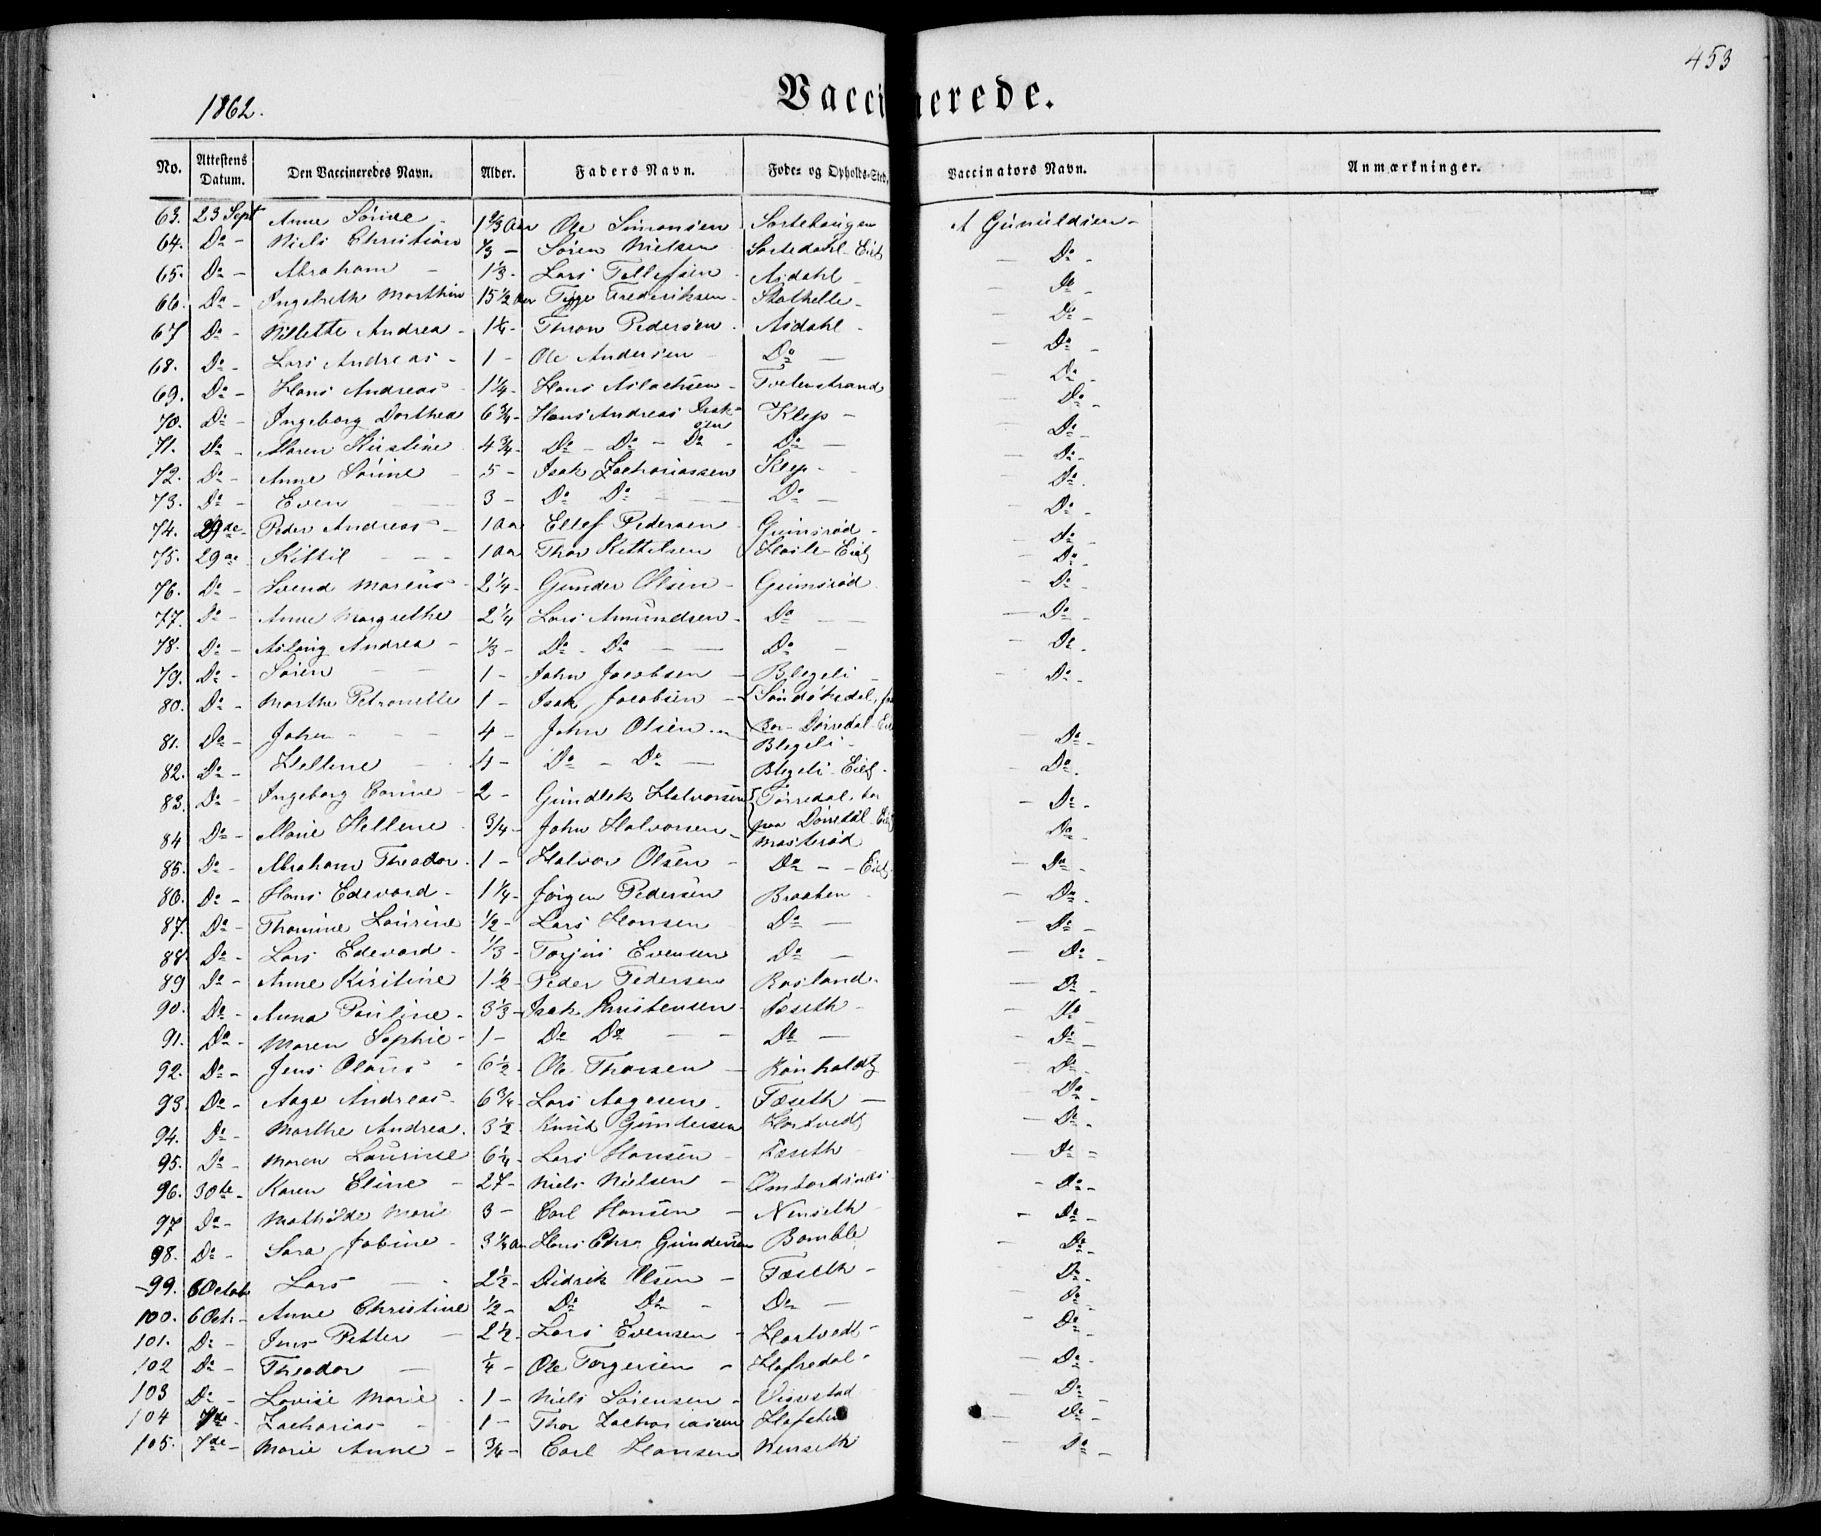 453
1862.
Vaccinerede.
No. Attestens Datum. Den Vaccineredes Navn. Alder. Faders Navn. Føde- og Opholds-Sted. Vaccinators Navn. Anmærkninger.
63. 23 Sept Anne Sørine - 1 2/3 Aar Ole Simonsen Sortehaugen A Gunuldsen -
64. Do - Niels Christian 1/3 - Søren Nielsen Sortedahl Eiet - Do -
65. Do - Abraham - 1 1/3 - Lars Tollefsen - Asdahl - Do -
66. Do - Ingebreth Marthin 15 1/2 Aar Tygge Frederiksen - Stathelle - Do -
67 Do - Nillette Andrea - 1 1/4 - Thron Pedersen - Asdahl - Do -
68. Do - Lars Andreas - 1 - Ole Andersen Do - Do -
69. Do - Hans Andreas - 1 1/4 - Hans Aslachsen - Tvetenstrand Do -
70. Do - Ingeborg Dorthea 6 3/4 - Hans Andreas Isaksen Klep - Do -
71. Do - Maren Kirstine 4 3/4 - Do - Do - Do - Do - Do -
72. Do - Anne Sørine - 5 - Isak Zachariassen Klep - Do -
73. Do - Even 3 - Do Do - Do - Do -
74. 29de - Peder Andreas - 1 Aar Ellef Pedersen Grimsrød - Do -
75. 29de Kittil - - 1 Aar Thor Kittelsen Hasle - Eiet Do -
76. Do - Svend Marcus - 2 1/4 - Gunder Olsen - Grimsrød - Do -
77. Do - Anne Margrethe 2 1/4 Lars Amundsen - Do - - Do -
78. Do - Aslaug Andrea - 1/3 - Do - Do - Do - - Do -
79. Do - Søren - 1 - John Jacobsen - Blegeli - - Do -
80. Do - Marthe Petronelle 1 - Isak Jacobsen - Sandøkedal,
Bor - Dørredal
81. Do - Johan - - 4 - John Olsen - Blegeli - - Do -
82. Do - Hellene - 4 - Do - Do - Blegeli - Eiet - - Do -
83. Do - Ingeborg Corine - 2 - Gundlek Halvorsen Tørredal, bor
paa Dørredal - Eiet - Do -
84 Do - Marie Hellene - 3/4 - John Halvorsen - Mostrød Do -
85. Do - Abraham Theodor - 1 - Halvor Olsen - Do - - Eiet - Do -
86. Do - Hans Edevard - 1 1/4 - Jørgen Pedersen Braaten - - Do -
87. Do - Thomine Laurine 1/2 - Lars Hansen Do - - Do -
88 Do - Lars Edevard - 1/3 - Torjus Evensen Do - - Do -
89 Do - Anne Kirstine 1 1/2 - Peder Pedersen Rosland - - Do -
90. Do - Anna Pauline - 3 1/3 - Isak Christensen - Fæseth - - Do -
91. Do - Maren Sophie - 1 - Do Do - - Do - - Do -
92. Do - Jens Olaus - 6 1/2 - Ole Thorsen - Rønholdt - Do -
93. Do - Aage Andreas - 6 3/4 - Lars Aagesen - Fæseth - Do -
94. Do - Marthe Andrea - 3 1/2 - Knud Gundersen Hortvedt - Do -
95. Do - Maren Laurine 6 1/4 - Lars Hansen - Fæseth - Do -
96. 30te - Karen Eline - 27 - Niels Nielsen - - Do -
97 Do - Mathilde Marie 3 - Carl Hansen - Nenseth - - Do -
98. Do - Sara Jobine - 3 1/4 Aar Hans Chr. Gundersen Bamble - Do -
99. 6 Octob Lars - 2 1/2 - Didrik Olsen - Fæseth - - Do -
100. 6 Oct. - Anne Christine 1/2 - Do Do - Do - Do -
101. Do - Jens Petter - 2 1/2 - Lars Evensen - Hortvedt - - Do -
102 Do - Theodor - 1/4 - Ole Torgersen - Hafredal - - Do -
103 Do - Lovise Marie - 1 - Niels Sørensen - - Do -
104 7de - Zacharias - 1 - Thor Zachariasen - Do -
105. 7de - Marie Anne - 3/4 - Carl Hansen Nenseth - Do -